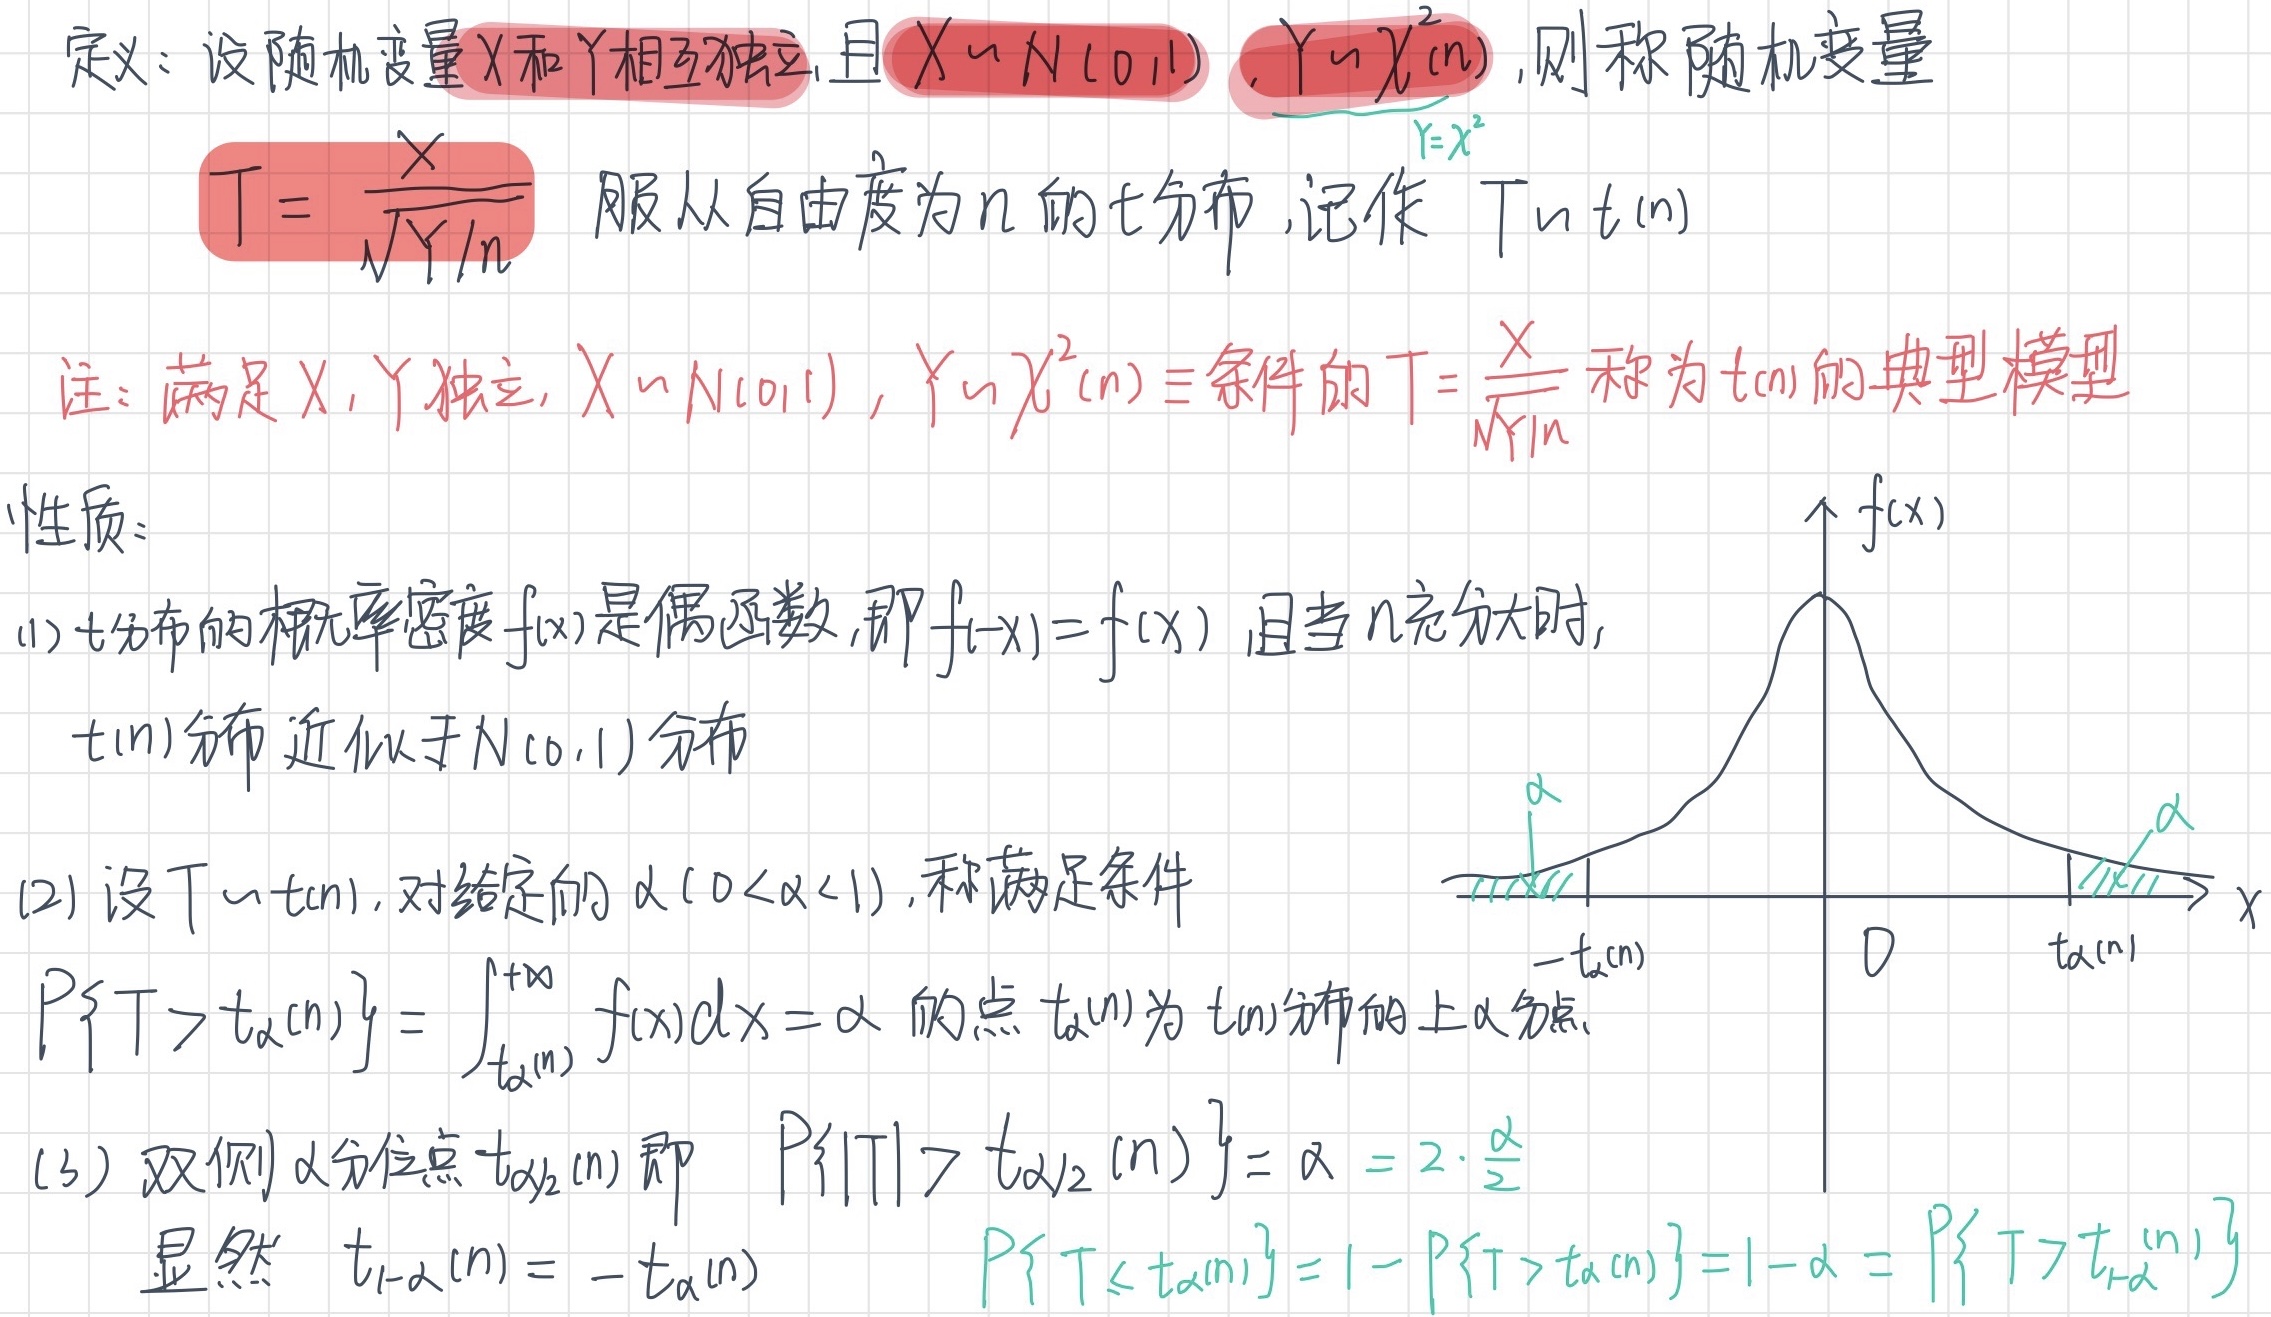 定义：设随机变量X和Y相互独立,且 X～N(0,1),Y～χ²(n),则称随机变量
Y=X²
T = X/√Y/n 服从自由度为n的t分布,记作 T～t(n)
注：满足X,Y独立,X～N(0,1),Y～χ²(n)三条件的T=X/√Y/n称为t(n)的典型模型
性质：
f(x)
(1) t分布的概率密度f(x)是偶函数,即f(-x)=f(x),且当n充分大时,
t(n)分布近似于N(0,1)分布
α
α
(2) 设T～t(n),对给定的α(0<α<1),称满足条件
x
-tα(n) 0 tα(n)
P{T>tα(n)}=∫_{tα(n)}^{+∞} f(x)dx=α 的点tα(n)为t(n)分布的上α分点.
(3) 双侧α分位点tα/2(n)即 P{|T|>tα/2(n)}=α=2·α/2
显然 t1-α(n)=-tα(n) P{T≤tα(n)}=1-P{T>tα(n)}=1-α=P{T>t1-α(n)}